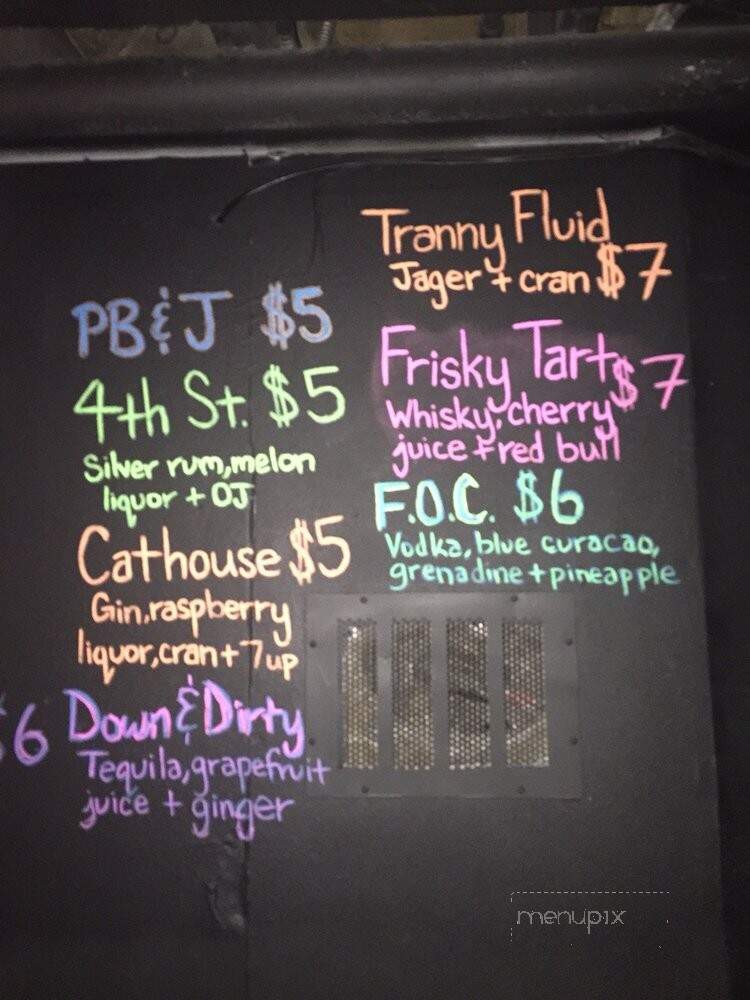 PB&J $5
4th St. $5
Silver rum, melon
liquor + OJ
Cathouse $5
Gin, raspberry
liquor, cran + 7up
$6 Down & Dirty
Tequila, grapefruit
juice + ginger
Tranny Fluid
Jager + cran $7
Frisky Tart $7
Whisky, cherry
juice + red bull
F.O.C. $6
Vodka, blue curacao,
grenadine + pineapple
menupix